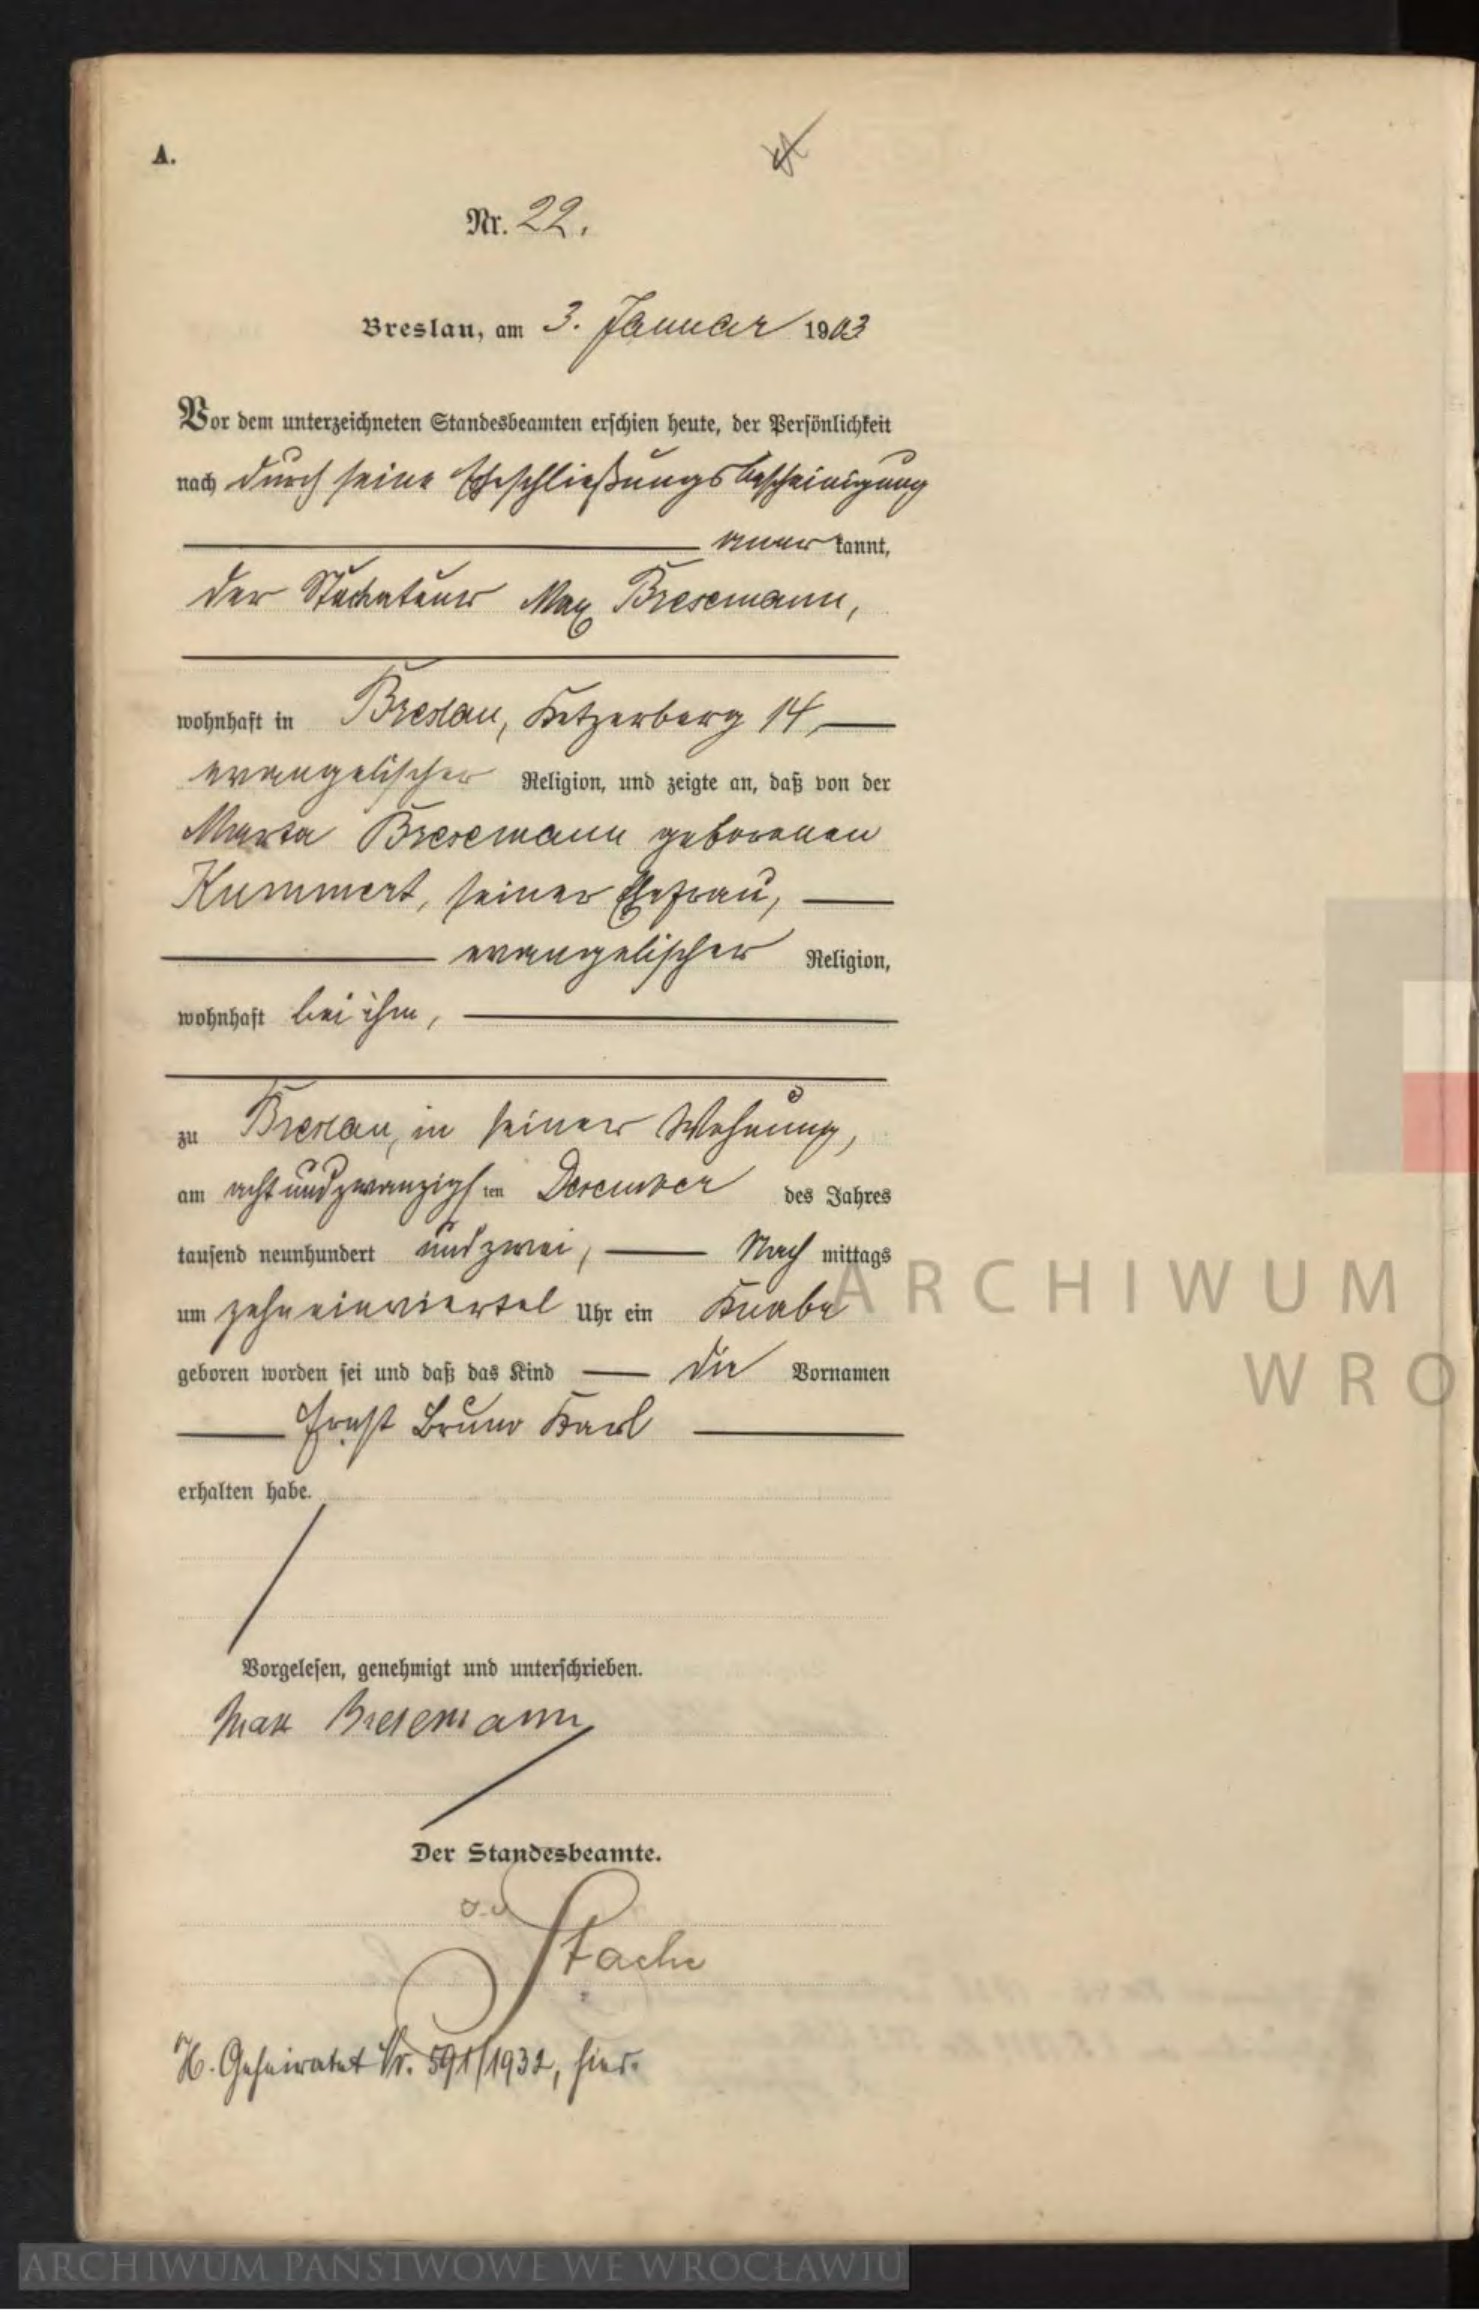 A.
Nr. 22.
Breslau, am 3. Januar 1903
Vor dem unterzeichneten Standesbeamten erschien heute, der Persönlichkeit
nach durch seine Eheschließungsbescheinigung
anerkannt,
der Stuckateur Max Bresemann,
wohnhaft in Breslau, Ketzerberg 14,
evangelischer Religion, und zeigte an, daß von der
Marta Bresemann geborenen
Kummert, seiner Ehefrau,
evangelischer Religion,
wohnhaft bei ihm,
zu Breslau, in seiner Wohnung,
am achtundzwanzigsten Dezember des Jahres
tausend neunhundert und zwei, Nachmittags
um zehn einviertel Uhr ein Knabe
geboren worden sei und daß das Kind die Vornamen
Ernst Bruno Karl
erhalten habe.
Vorgelesen, genehmigt und unterschrieben.
Max Bresemann
Der Standesbeamte.
Stache
H. Geheiratet Nr. 591/1932, hier.
ARCHIWUM
WRO
ARCHIWUM PAŃSTWOWE WE WROCŁAWIU